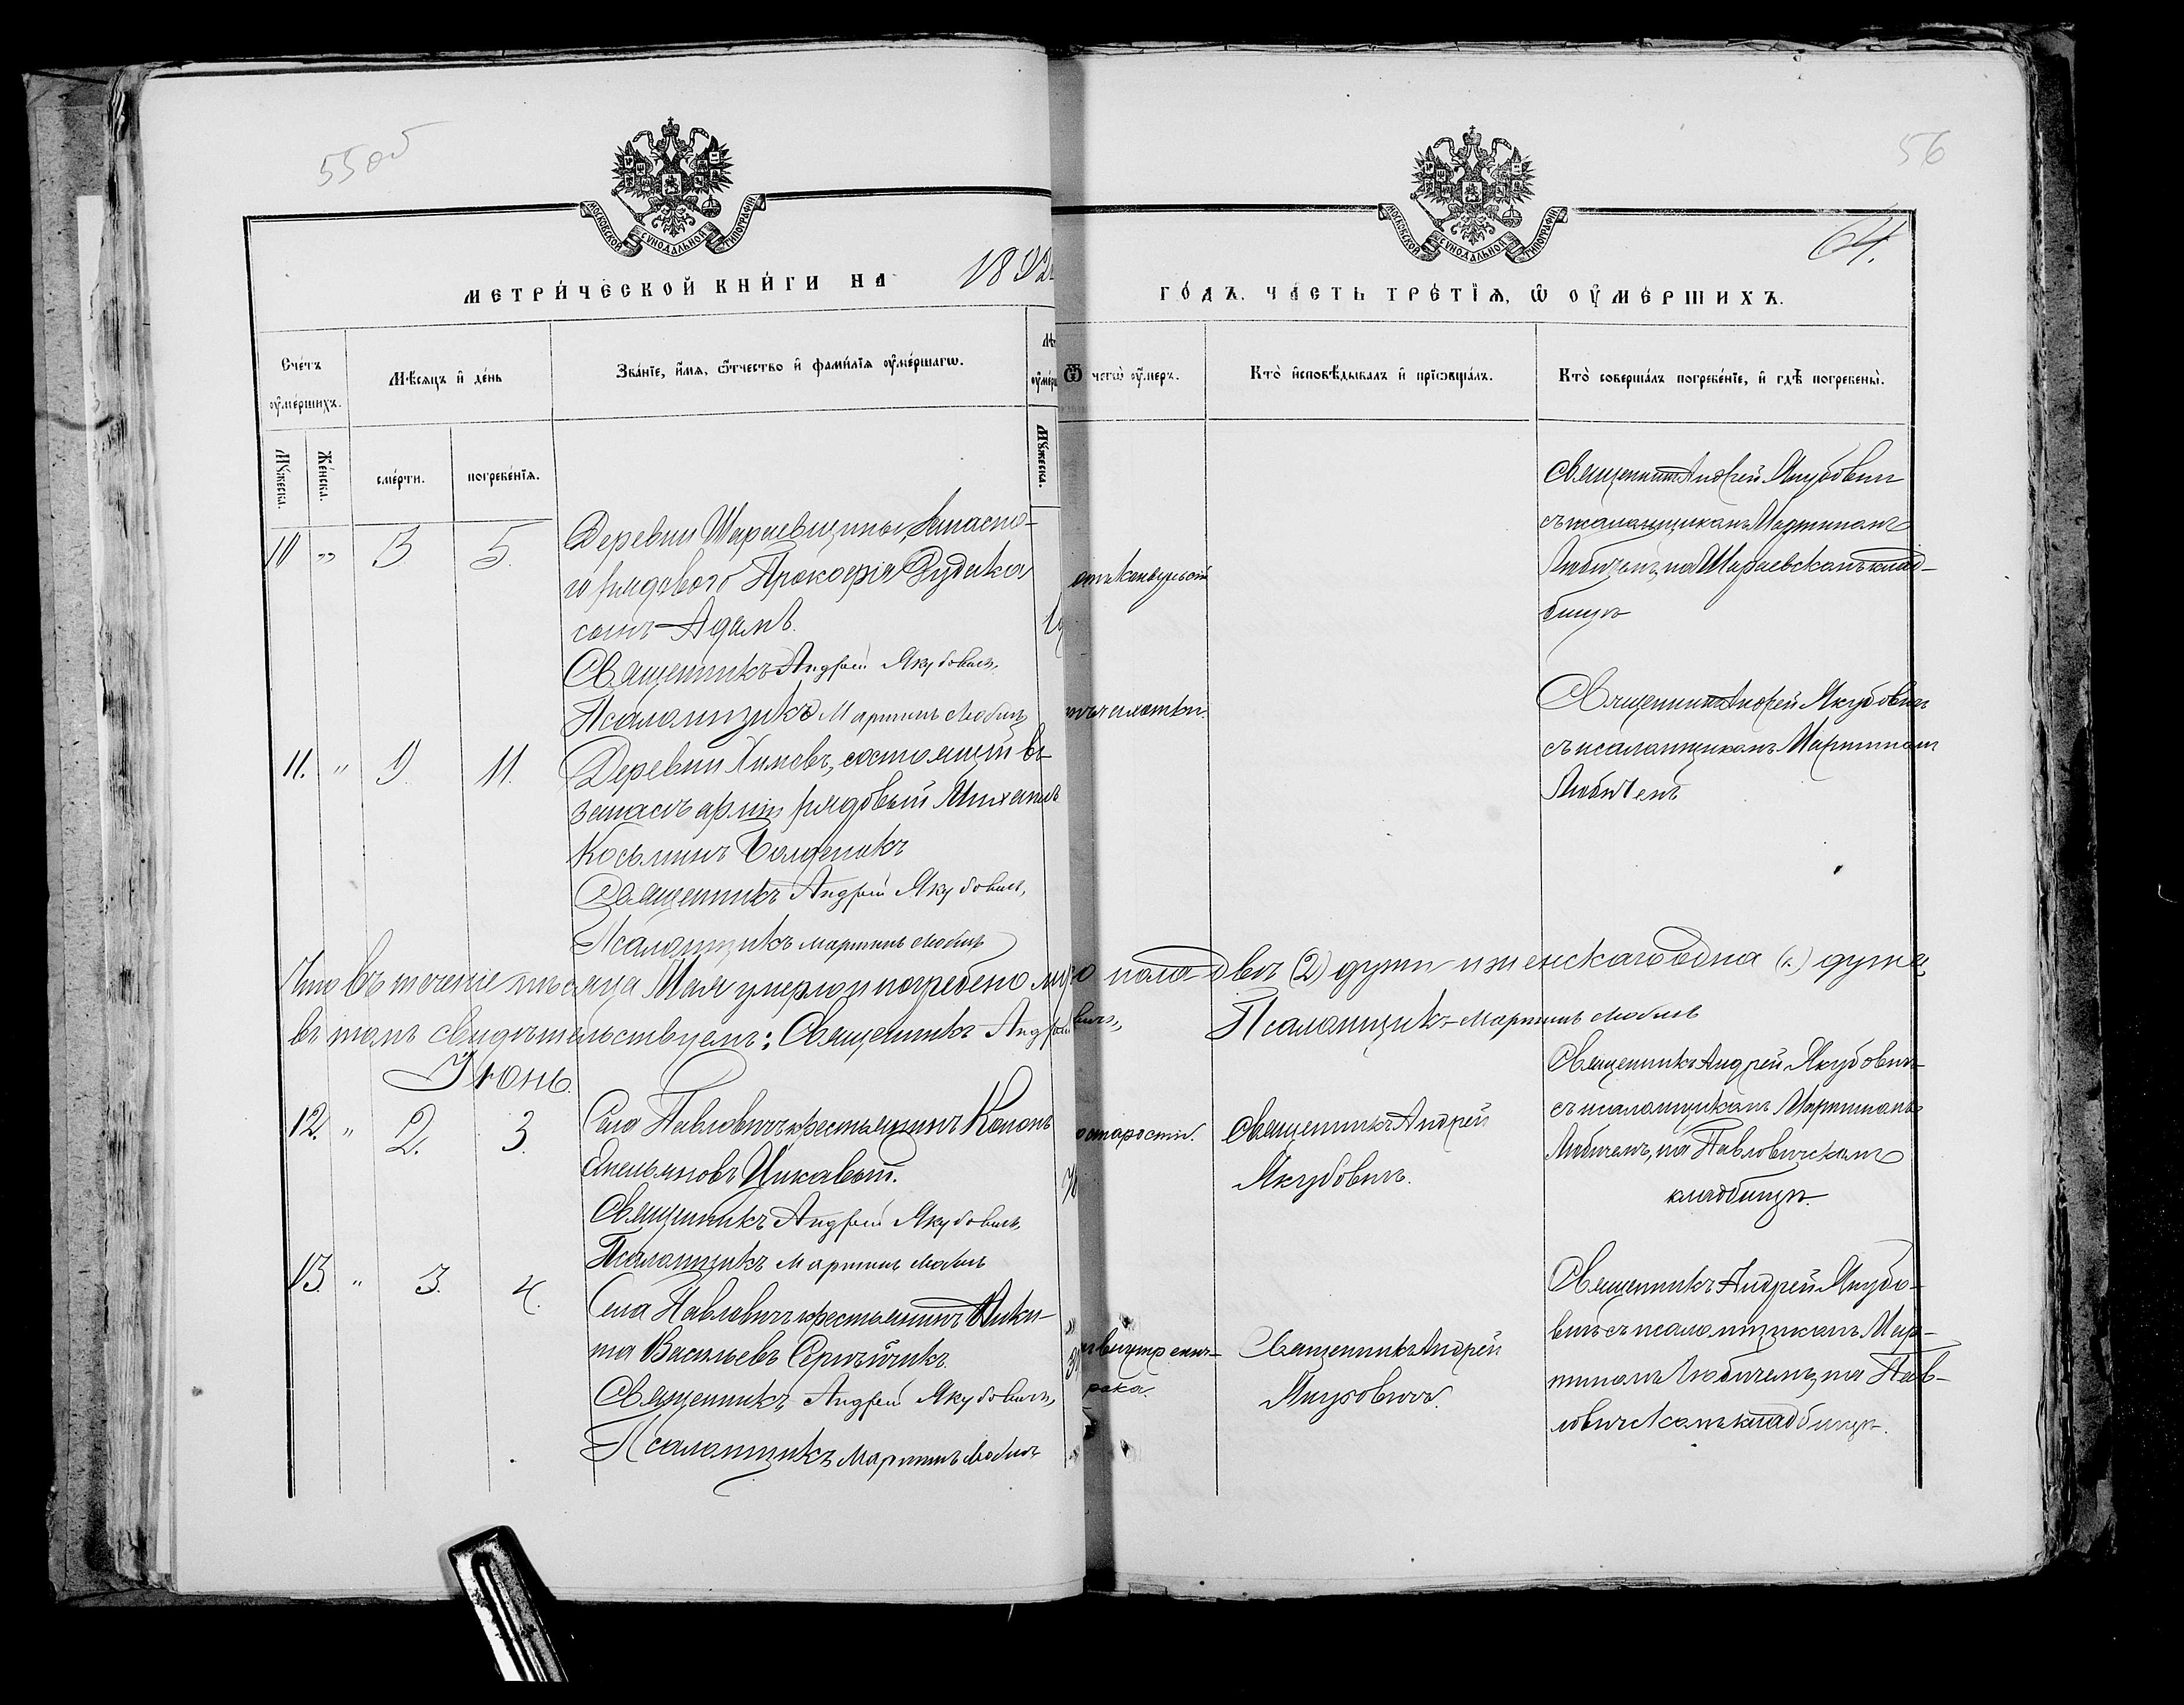 55об
56
64.
МОСКОВСКОЙ СѴНОДАЛЬНОЙ ТИПОГРАФІИ
МОСКОВСКОЙ СѴНОДАЛЬНОЙ ТИПОГРАФІИ
МЕТРИ́ЧЕСКОЙ КНИ́ГИ НА 1892
ГО́ДЪ, ЧА́СТЬ ТРЕ́ТІѦ, Ѡ ОУ҆МЕ́РШИХЪ.
Счетъ оу҆ме́ршихъ.
Мѣсяцъ и҆ де́нь
Зва́ніе, и҆́мя, ѻ҆́тчество и҆ фами́лїя оу҆ме́ршагѡ.
Ѿ чегѡ̀ оу҆́меръ.
Кто̀ и҆сповѣ́дывалъ и҆ прїѡбща́лъ.
Кто̀ соверша́лъ погребе́нїе, и҆ гдѣ̀ погребены̀.
Мꙋ́жеска.
Же́нска.
сме́рти.
погребе́нїя.
Мꙋ́жеска.
10 " 3 5.
Деревни Шараевщины запасно-
го рядового Прокофія Рудика
сынъ Адамъ.
Священникъ Андрей Якубовичъ,
Псаломщикъ Мартинъ Любичъ
Священникъ Андрей Якубович
съ псаломщикомъ Мартиномъ
Любичемъ, на Шараевскомъ клад-
бищѣ
11. " 9. 11.
Деревни Химовъ, состоящій въ
запасѣ арміи рядовый Михаилъ
Косьминъ
Священникъ Андрей Якубовичъ,
Псаломщикъ Мартинъ Любичъ
отъ чахотки.
Священникъ Андрей Якубовичъ
съ псаломщикомъ Мартиномъ
Любичемъ
Что въ теченіе мѣсяца Мая умерло и погребено пола двѣ (2) души и женскаго одна (1.) душа,
въ томъ свидѣтельствуемъ: Священникъ Андрей Псаломщикъ Мартинъ Любичъ
Іюнь.
12. " 2. 3.
Села Павловичъ крестьянинъ Кононъ
Емельяновъ Чикавый.
Священникъ Андрей Якубовичъ,
Псаломщикъ Мартинъ Любичъ
старости.
Священникъ Андрей
Якубовичъ.
Священникъ Андрей Якубовичъ
съ псаломщикомъ Мартиномъ
Любичемъ, на Павловичскомъ
кладбищѣ.
13. " 3. 4.
Села Павловичъ крестьянинъ Ники-
та Васильевъ
Священникъ Андрей Якубовичъ,
Псаломщикъ Мартинъ Любичъ
рака.
Священникъ Андрей
Якубовичъ.
Священникъ Андрей Якубо-
вичъ съ псаломщикомъ Мар-
тиномъ Любичемъ, на Пав-
ловичскомъ кладбищѣ.